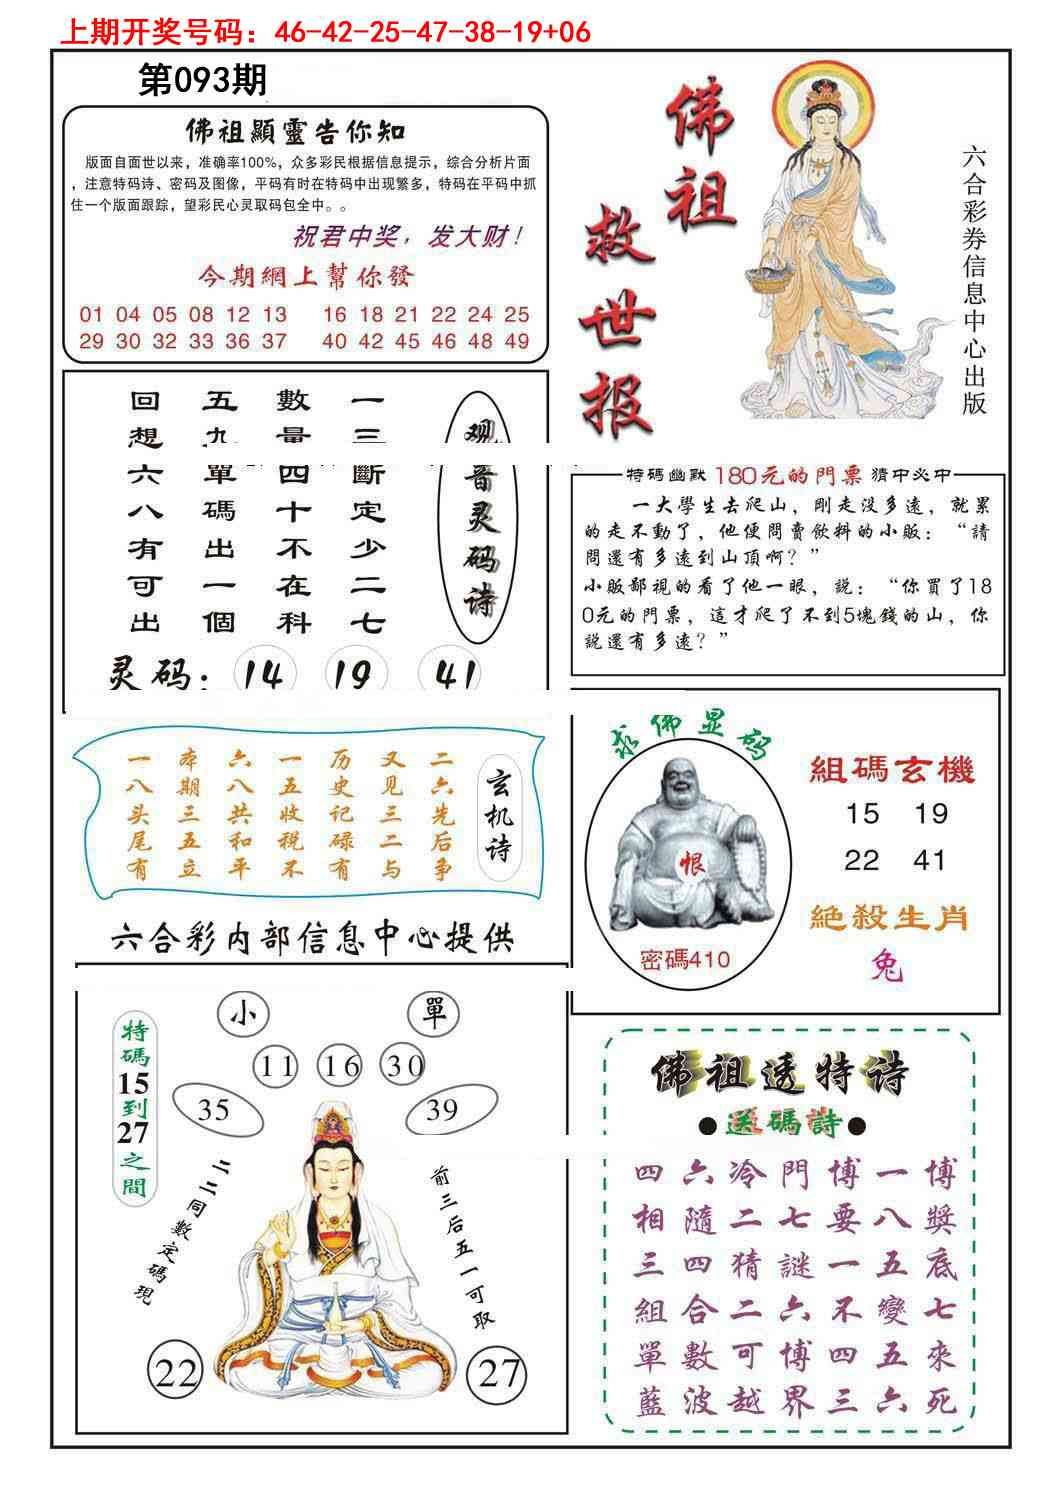 上期开奖号码：46-42-25-47-38-19+06
第093期
佛祖顯靈告你知
版面自面世以来，准确率100%，众多彩民根据信息提示，综合分析片面
，注意特码诗、密码及图像，平码有时在特码中出现繁多，特码在平码中抓
住一个版面跟踪，望彩民心灵取码包全中。。
祝君中奖，发大财！
今期網上幫你發
01 04 05 08 12 13 16 18 21 22 24 25
29 30 32 33 36 37 40 42 45 46 48 49
佛祖
救世报
六合彩券信息中心出版
观音灵码诗
一三斷定少二七
數量四十不在科
五九單碼出一個
回想六八有可出
灵码：14 19 41
特碼幽默 180元的門票 猜中必中
一大學生去爬山，剛走没多遠，就累
的走不動了，他便問賣飲料的小販：“請
問還有多遠到山頂啊？”
小販鄙視的看了他一眼，説：“你買了18
0元的門票，這才爬了不到5塊錢的山，你
説還有多遠？”
玄机诗
二六先后争
又见三二与
历史记碌有
一五收税不
六八共和平
本期三五立
一八头尾有
六合彩内部信息中心提供
求佛显码
恨
密碼410
組碼玄機
15 19
22 41
絶殺生肖
兔
小 單
11 16 30
35 39
特碼15到27之間
二二同數定碼現
前三后五一可取
22 27
佛祖透特诗
●送碼詩●
四六冷門博一博
相隨二七要八獎
三四猜謎一五底
組合二六不變七
單數可博四五來
藍波越界三六死